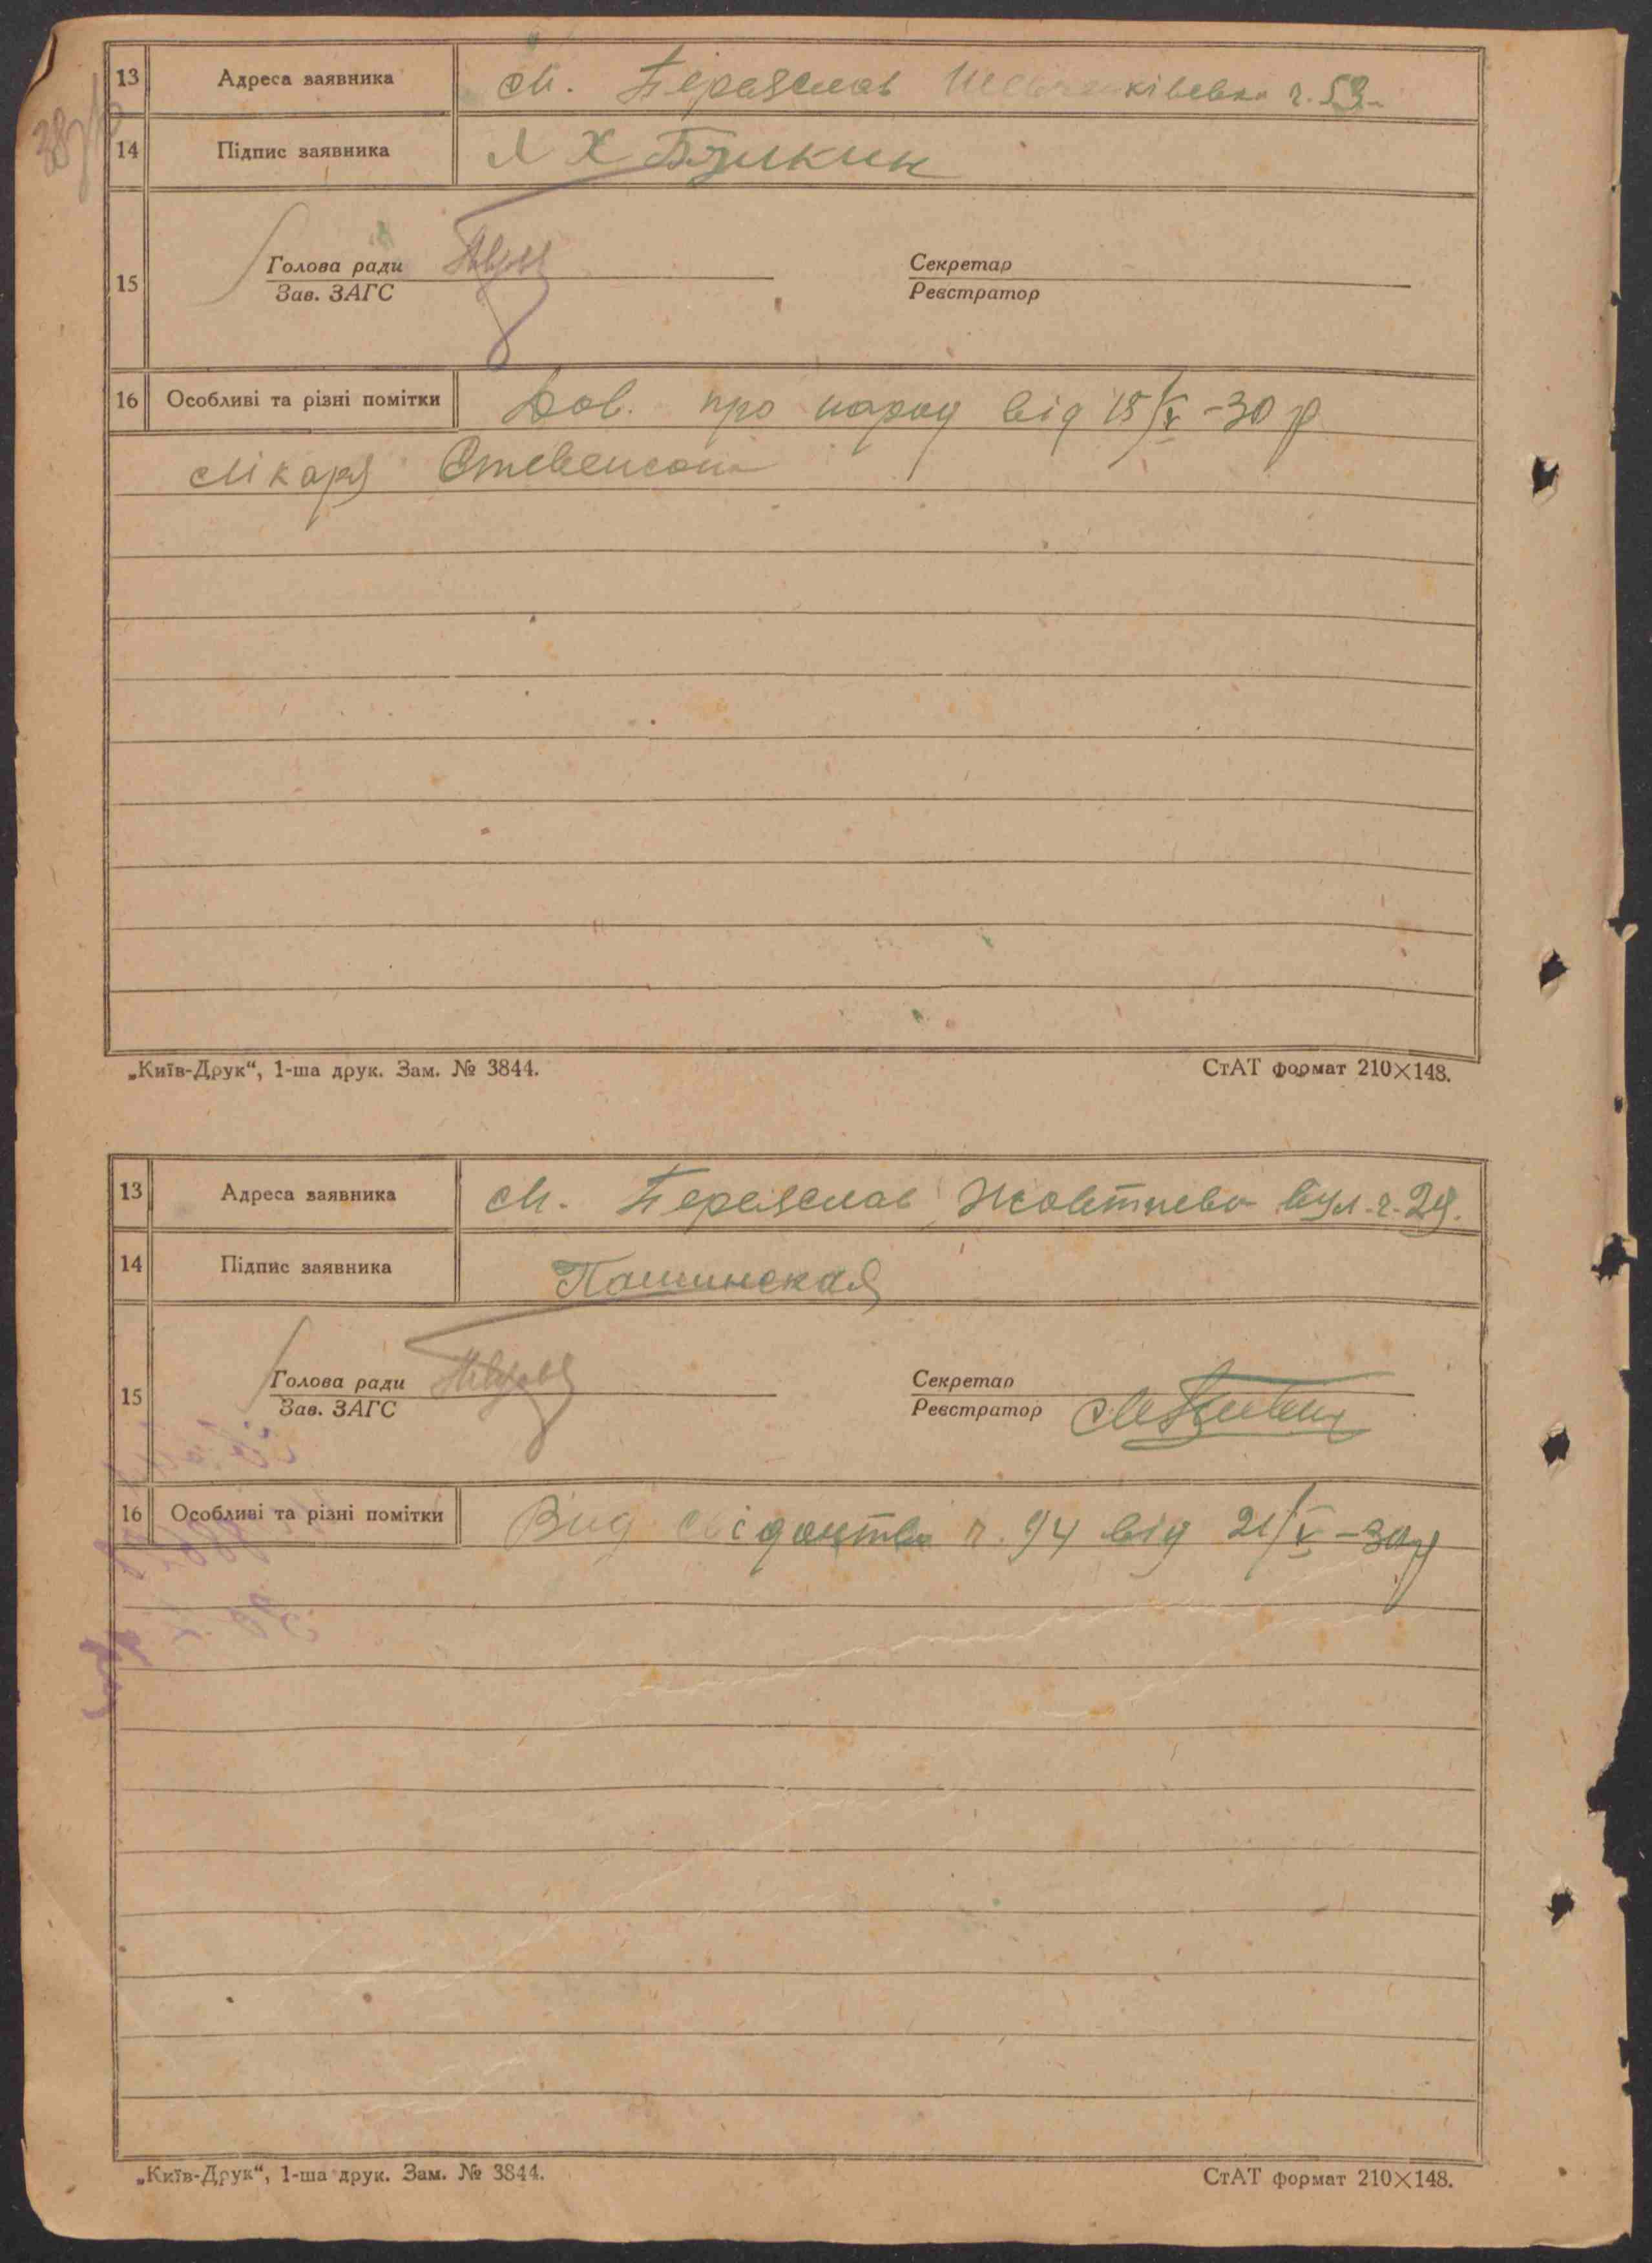 13 Адреса заявника м. Переяслав Шевченківська ч. 53
14 Підпис заявника
15 Голова ради Секретар
Зав. ЗАГС Реєстратор
16 Особливі та різні помітки Дов. про народ від 15/V-30 р
лікаря Стевенсона
„Київ-Друк“, 1-ша друк. Зам. № 3844. СтАТ формат 210×148.
13 Адреса заявника м. Переяслав Жовтнева вул. ч. 29.
14 Підпис заявника Пашинская
15 Голова ради Секретар
Зав. ЗАГС Реєстратор
16 Особливі та різні помітки Вид свідоцтво ч. 94 від 21/V-30 р
„Київ-Друк“, 1-ша друк. Зам. № 3844. СтАТ формат 210×148.